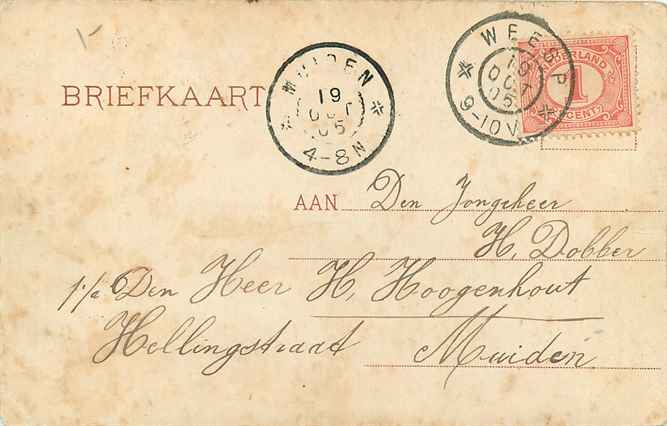 BRIEFKAART
MUIDEN
19
OCT
05
4-8N
WEESP
OCT
05
9-10V
NEDERLAND
1
CENT
AAN Den Jongeheer
H. Dobber
p/a Den Heer H. Hoogenhout
Hellingstraat Muiden